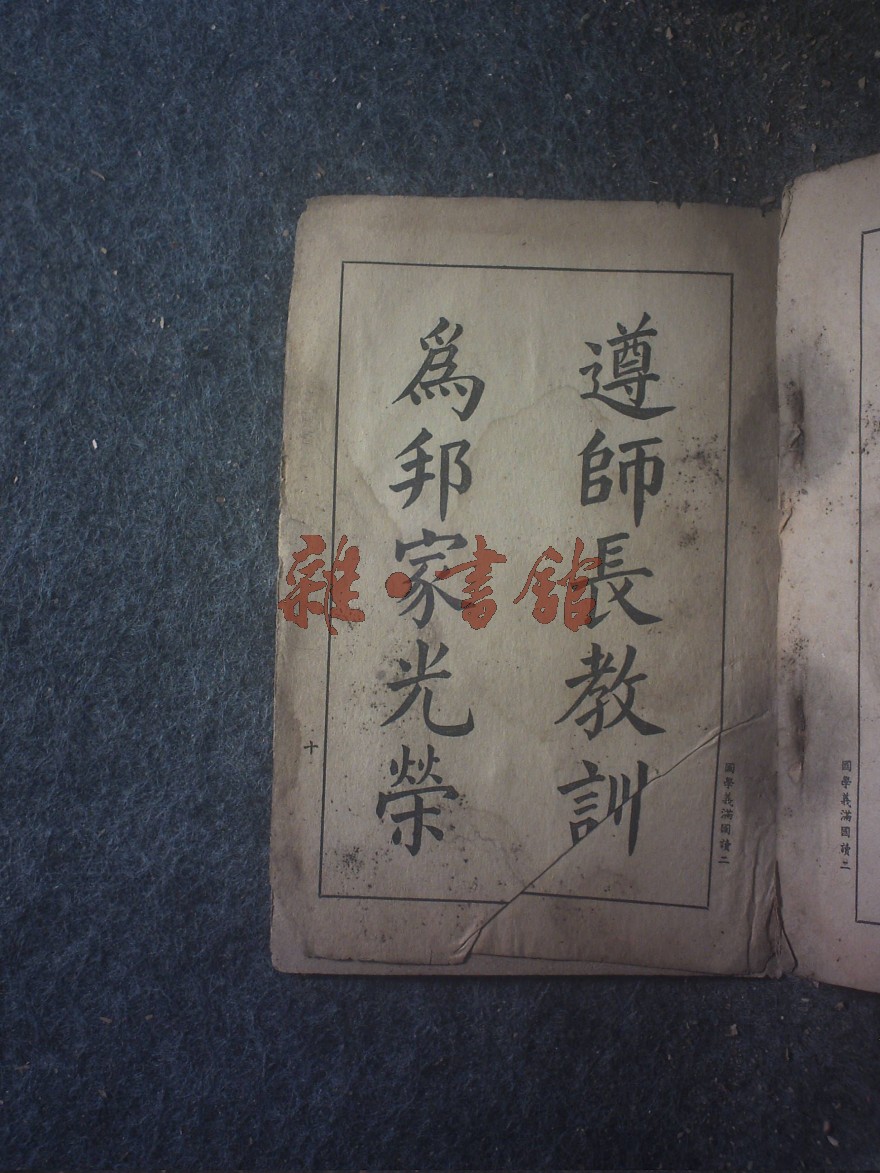 遵師長教訓
爲邦家光榮
十
國學義滿國讀二
國學義滿國讀二
雜·書館